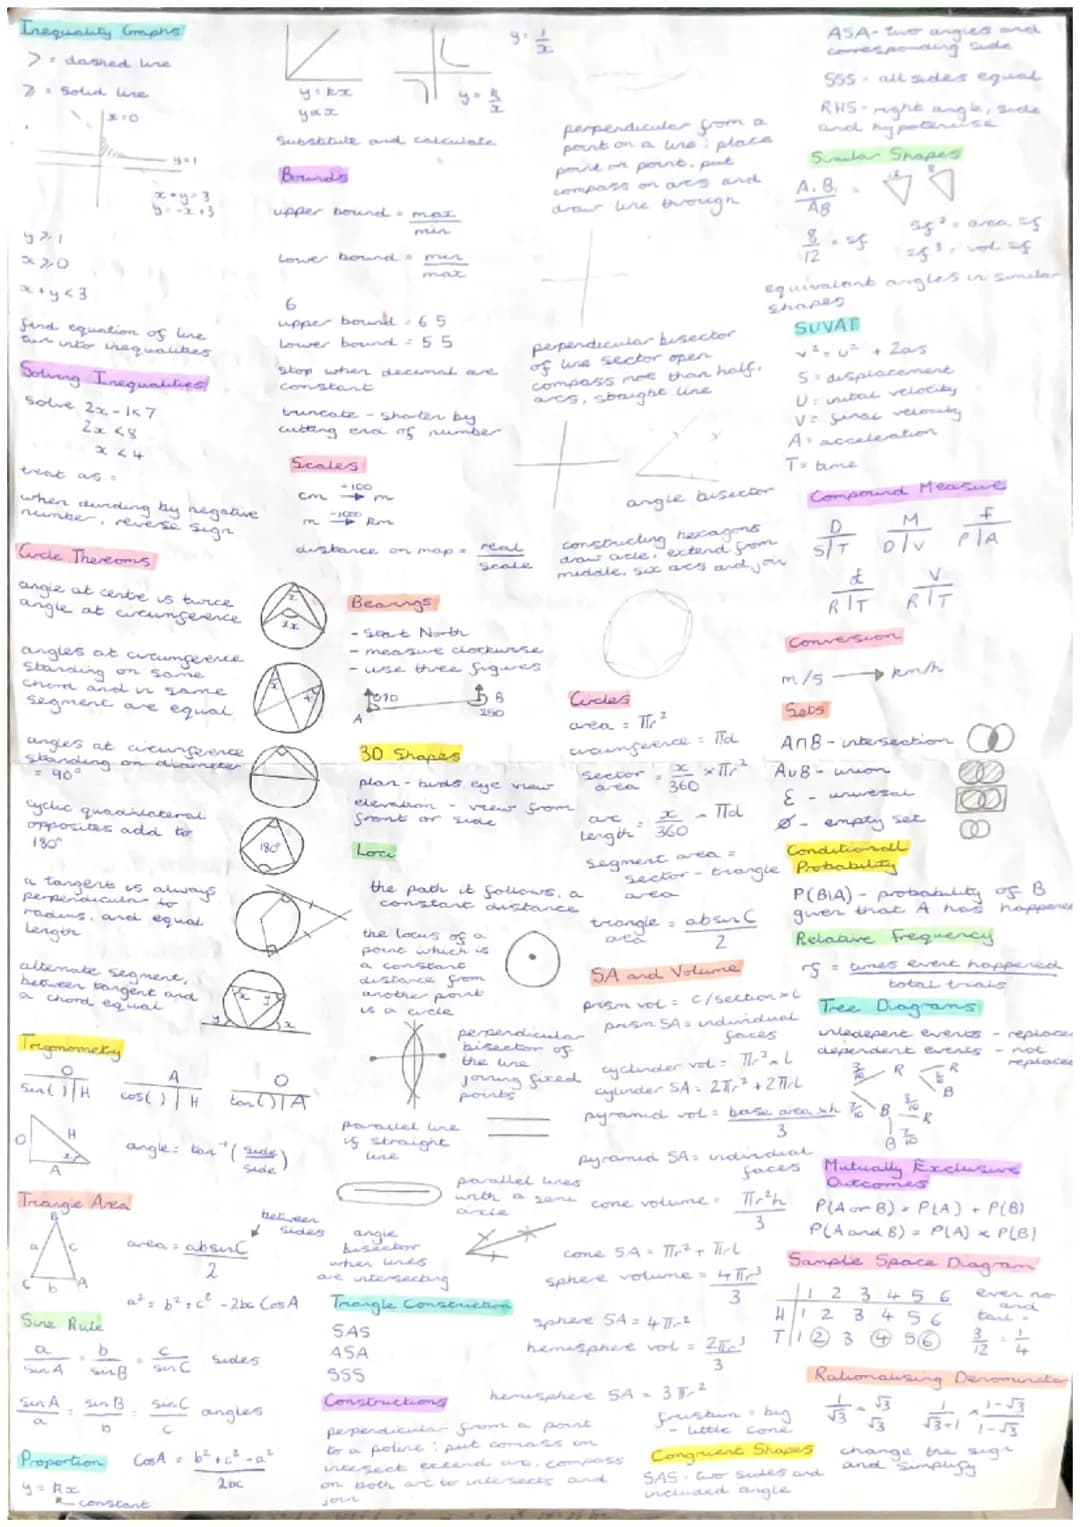 Inequality Graphs
> = dashed line
⩾ = solid line
x=0
y=1
x+y=3
y=-x+3
y⩾1
x⩾0
x+y<3
find equation of line
turn into inequalities
Solving Inequalities
Solve 2x-1<7
2x<8
x<4
treat as =
when dividing by negative
number, reverse sign
Circle Theroems
angle at centre is twice
angle at circumference
x
2x
angles at circumference
standing on same
chord and in same
segment are equal
angles at circumference
standing on diameter
= 90°
cyclic quadrilateral
opposites add to
180°
180°
a tangent is always
perpendicular to
radius, and equal
length
alternate segment,
between tangent and
a chord equal
x y
y x
Trigonometry
O
sin( ) | H
A
cos( ) | H
O
tan( ) | A
O
H
x
A
angle = tan⁻¹ (side/side)
Triangle Area
B
a c
C b A
between
sides
area = absinC
2
a² = b²+c² - 2bc CosA
Sine Rule
a/SinA = b/SinB = c/SinC sides
SinA/a = SinB/b = SinC/c angles
Proportion
y = kx
constant
CosA = b²+c²-a²
2bc
y = kx
y∝x
y = k/x
y = 1/x
substitute and calculate
Bounds
upper bound = max
min
Lower bound = min
max
6
upper bound = 6.5
Lower bound = 5.5
stop when decimal are
constant
truncate - shorten by
cutting end of number
Scales
cm ÷100 → m
m ÷1000 → km
distance on map = real
scale
Bearings
- Start North
- measure clockwise
- use three figures
070
A
B
250
3D Shapes
plan - birds eye view
elevation - view from
front or side
Loci
the path it follows, a
constant distance
the locus of a
point which is
a constant
distance from
another point
is a circle
perpendicular
bisector of
the line
joining fixed
points
parallel line
is straight
line
parallel lines
with a semi
circle
angle
bisector
when lines
are intersecting
Triangle Construction
SAS
ASA
SSS
Constructions
perpendicular from a point
to a poline: put comass on
intesect extend arc, compass
on both arc to intesects and
join
perpendicular from a
point on a line: place
point on point, put
compass on arcs and
draw line through
perpendicular bisector
of line sector open
compass moe than half,
arcs, straight line
angle bisector
constructing hexagons
draw circle, extend from
middle, six arcs and join
Circles
area = πr²
circumference = πd
sector area = x/360 × πr²
arc length = x/360 × πd
segment area =
sector - triangle
area
triangle area = absinC
2
SA and Volume
prism vol = c/section×L
prism SA = individual
faces
cyclinder vol = πr²×L
cylinder SA = 2πr² + 2πrL
pyramid vol = base area×h
3
pyramid SA = individual
faces
cone volume = πr²h
3
cone SA = πr² + πrL
sphere volume = 4πr³
3
sphere SA = 4πr²
hemisphere vol = 2πr³
3
hemisphere SA = 3πr²
frustum = big
- little cone
Congruent Shapes
SAS - two sides and
included angle
ASA - two angles and
corresponding side
SSS - all sides equal
RHS - right angle, side
and hypotenuse
Similar Shapes
A.B.
AB
8/12 = sf
sf² = area sf
sf³ = vol sf
equivalent angles in similar
shapes
SUVAT
v² = u² + 2as
S = displacement
U = initial velocity
V = final velocity
A = acceleration
T = time
Compound Measure
D
S|T
M
D|V
F
P|A
d
R|T
V
R|T
Conversion
m/s → km/h
Sets
A∩B - intersection
A∪B - union
ξ - universal
Ø - empty set
Conditionall
Probability
P(B|A) - probability of B
given that A has happened
Relative Frequency
rf = times event happened
total trials
Tree Diagrams
indepent events - replace
dependent events - not
replaced
3/10 R
R
B
7/10 B
3/10 R
B 7/10
Mutually Exclusive
Outcomes
P(A or B) = P(A) + P(B)
P(A and B) = P(A) × P(B)
Sample Space Diagram
1 2 3 4 5 6
H 1 2 3 4 5 6
T 1 2 3 4 5 6
even no
and
tail =
3/12 = 1/4
Rationalising Denominator
1/√3 × √3/√3
1/√3+1 × 1-√3/1-√3
change the sign
and simplify